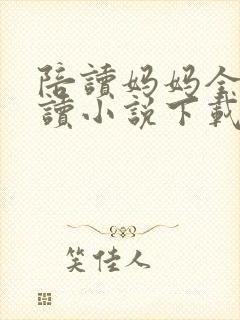 陪讀媽媽全
讀小說下載
笑佳人